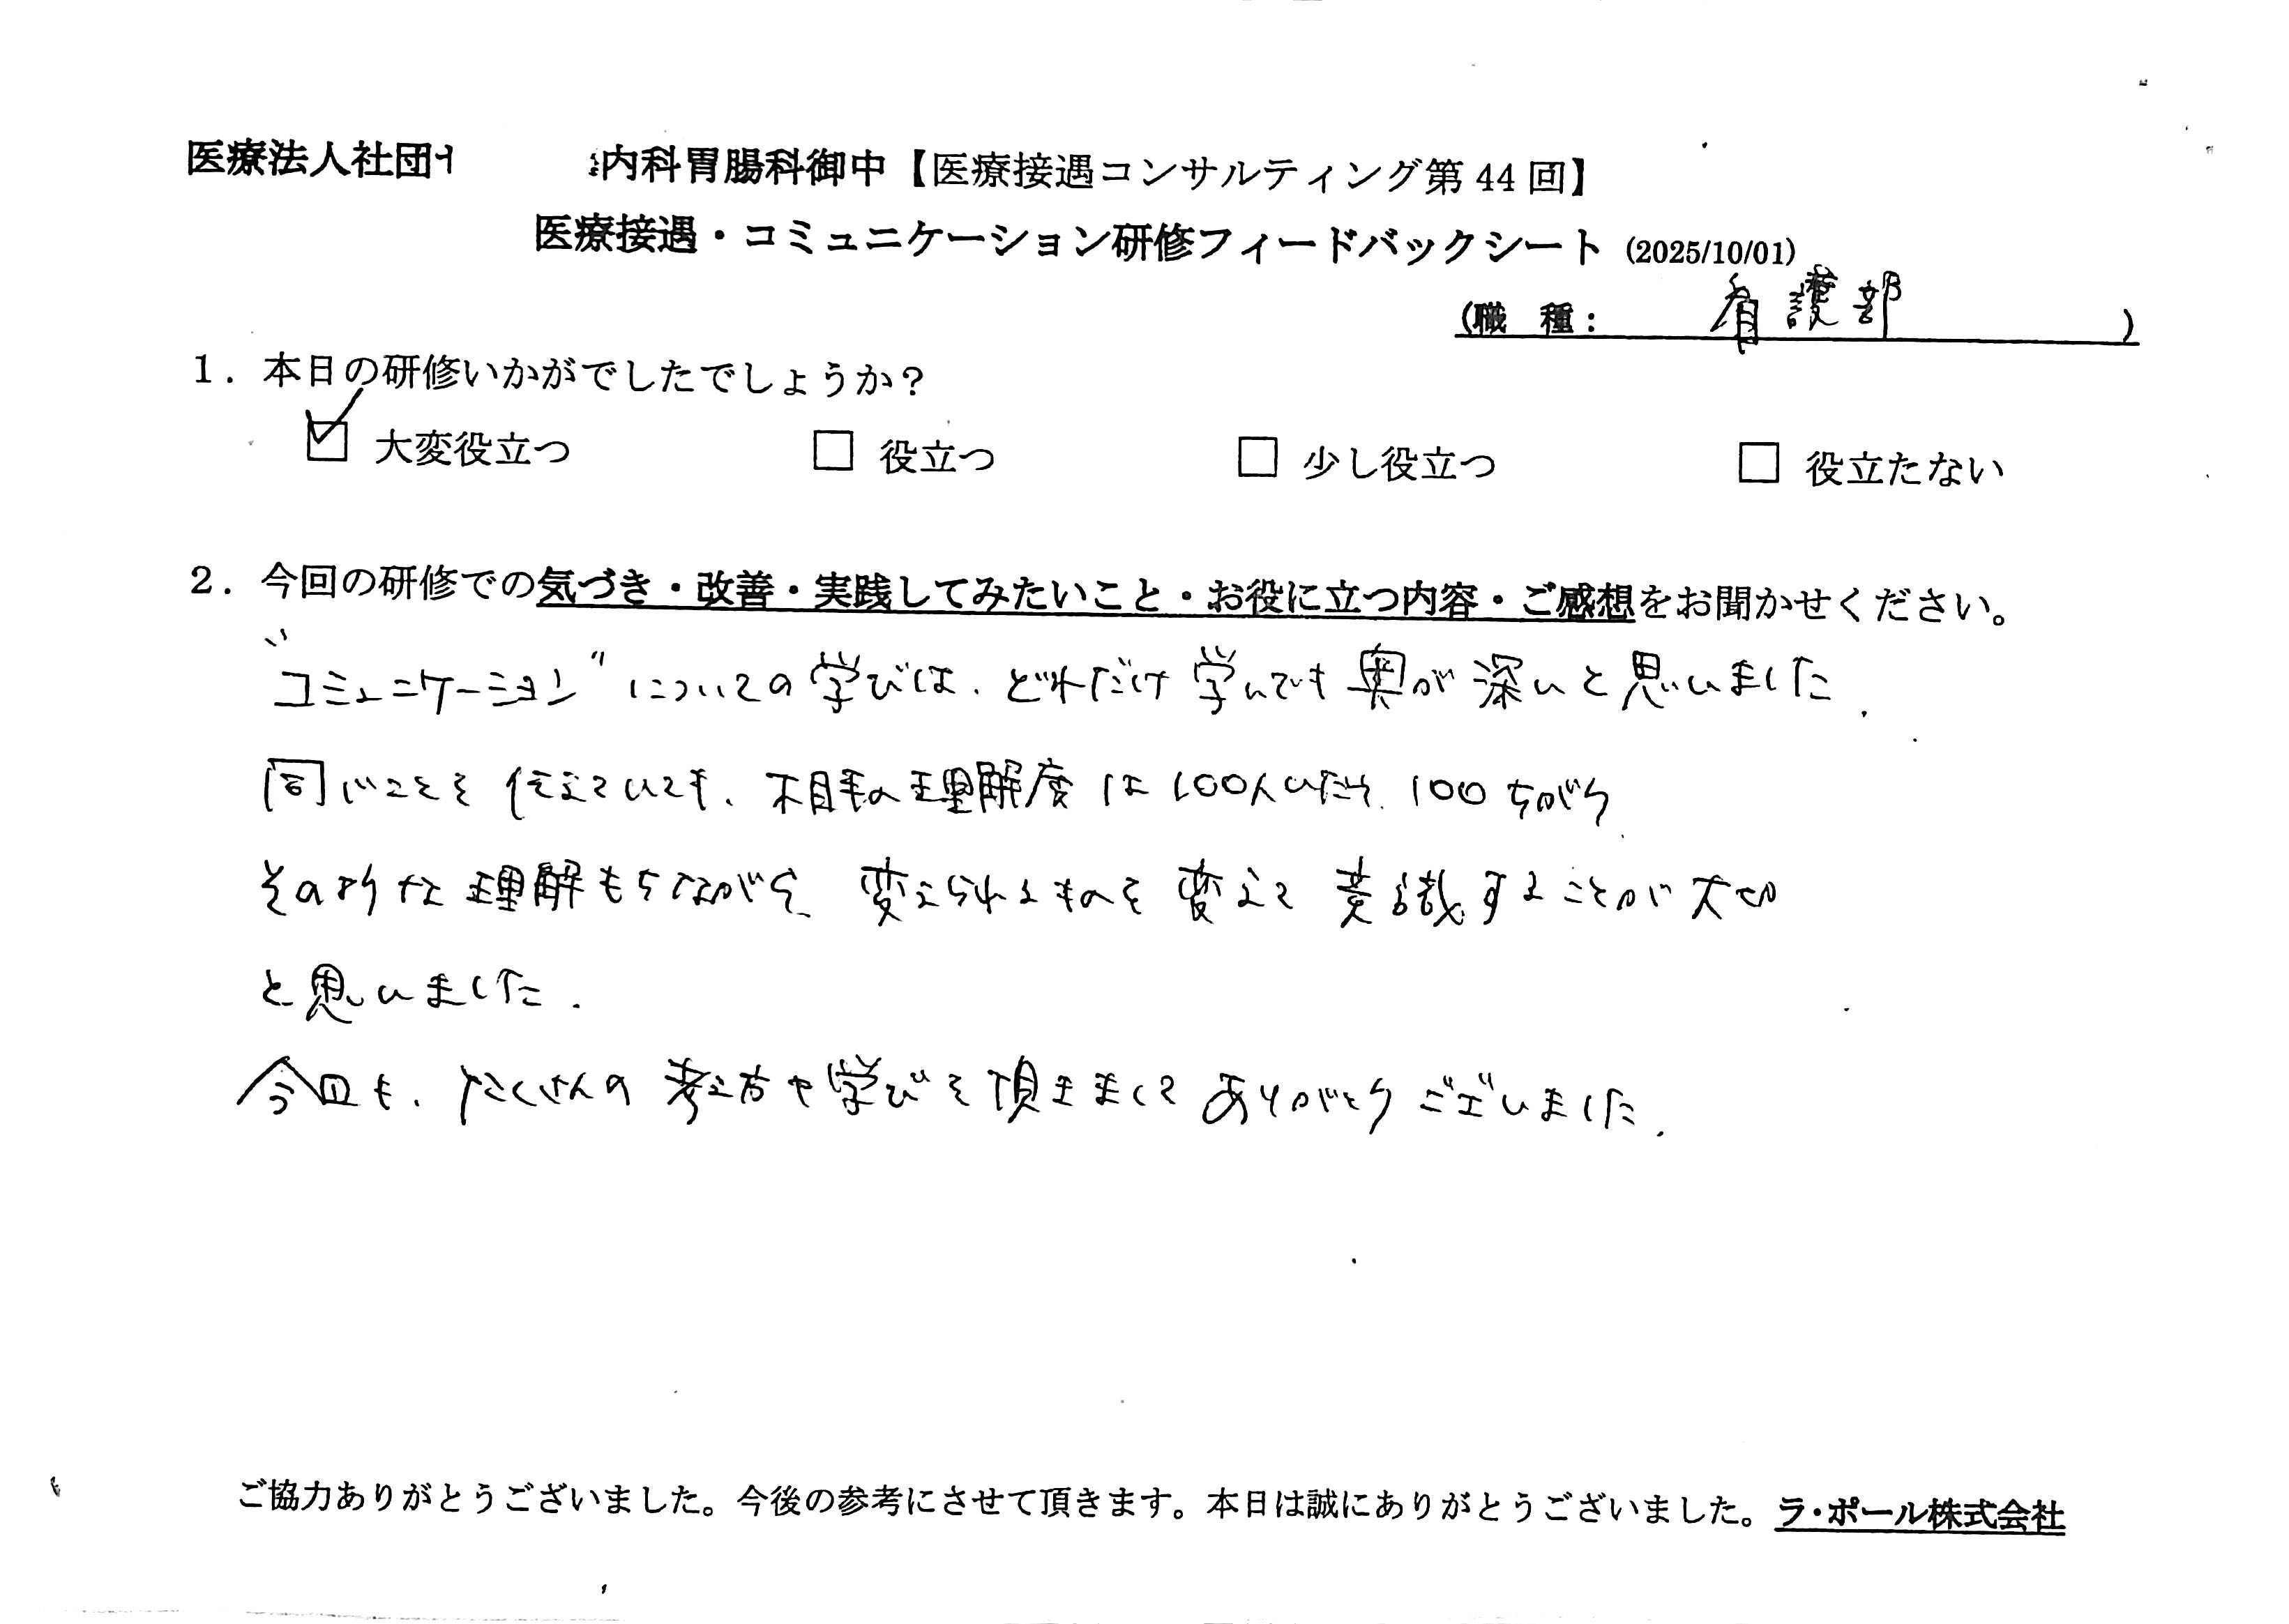 医療法人社団 内科胃腸科御中【医療接遇コンサルティング第 44 回】
医療接遇・コミュニケーション研修フィードバックシート (2025/10/01)
(職 種: 看護部 )
1. 本日の研修いかがでしたでしょうか？
☑ 大変役立つ □ 役立つ □ 少し役立つ □ 役立たない
2. 今回の研修での気づき・改善・実践してみたいこと・お役に立つ内容・ご感想をお聞かせください。
"コミュニケーション"についての学びは、どれだけ学んでも奥が深いと思いました.
同じことを伝えていても、相手の理解度は100人いたら、100ちがう
そのような理解もちながら、変えられるものを変えて意識することが大切
と思いました.
今回も、たくさんの考え方や学びを頂きましてありがとうございました.
ご協力ありがとうございました。今後の参考にさせて頂きます。本日は誠にありがとうございました。ラ・ポール株式会社